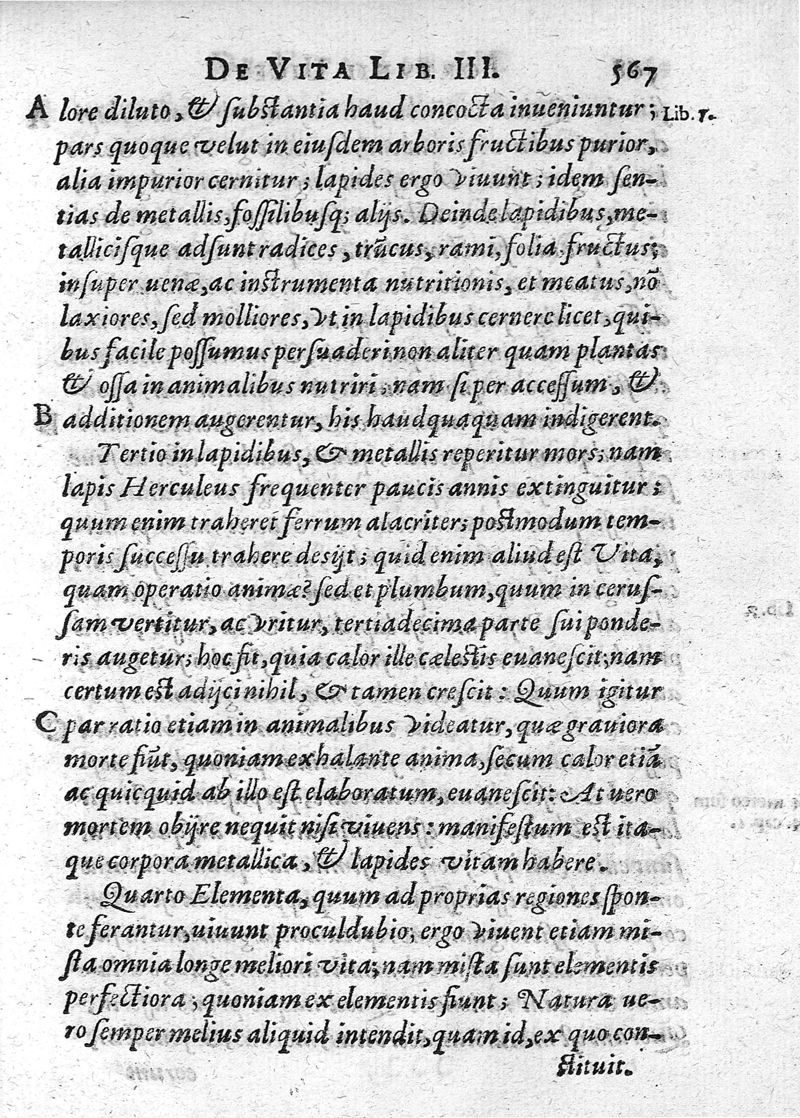 DE VITA LIB. III. 567
A lore diluto, & ſubſtantia haud concocta inueniuntur; Lib. 5.
pars quoque velut in eiuſdem arboris fructibus purior,
alia impurior cernitur; lapides ergo viuunt; idem ſen-
tias de metallis, foſſilibuſq; alijs. Deinde lapidibus, me-
talliciſque adſunt radices, trũcus, rami, folia fructus;
inſuper uenæ, ac inſtrumenta nutritionis, et meatus, nõ
laxiores, ſed molliores, vt in lapidibus cernere licet, qui-
bus facile poſſumus perſuaderi non aliter quam plantas
& oſſa in animalibus nutriri; nam ſi per acceſſum, &
B additionem augerentur, his haudquaquam indigerent.
Tertio in lapidibus, & metallis reperitur mors; nam
lapis Herculeus frequenter paucis annis extinguitur;
quum enim traheret ferrum alacriter; poſtmodum tem-
poris ſucceſſu trahere deſijt; quid enim aliud eſt Vita,
quam operatio animæ? ſed et plumbum, quum in ceruſ-
ſam vertitur, ac vritur, tertiadecima parte ſui ponde-
ris augetur; hoc fit, quia calor ille cæleſtis euaneſcit; nam
certum eſt adijci nihil, & tamen creſcit: Quum igitur
C par ratio etiam in animalibus videatur, quæ grauiora
morte fiũt, quoniam exhalante anima, ſecum calor etiã
ac quicquid ab illo eſt elaboratum, euaneſcit: At uero
mortem obijre nequit niſi viuens: manifeſtum eſt ita-
que corpora metallica, & lapides vitam habere.
Quarto Elementa, quum ad proprias regiones ſpon-
te ferantur, uiuunt proculdubio; ergo viuent etiam mi-
ſta omnia longe meliori vita; nam miſta ſunt elementis
perfectiora, quoniam ex elementis fiunt; Natura ue-
ro ſemper melius aliquid intendit, quam id, ex quo con-
ſtituit.